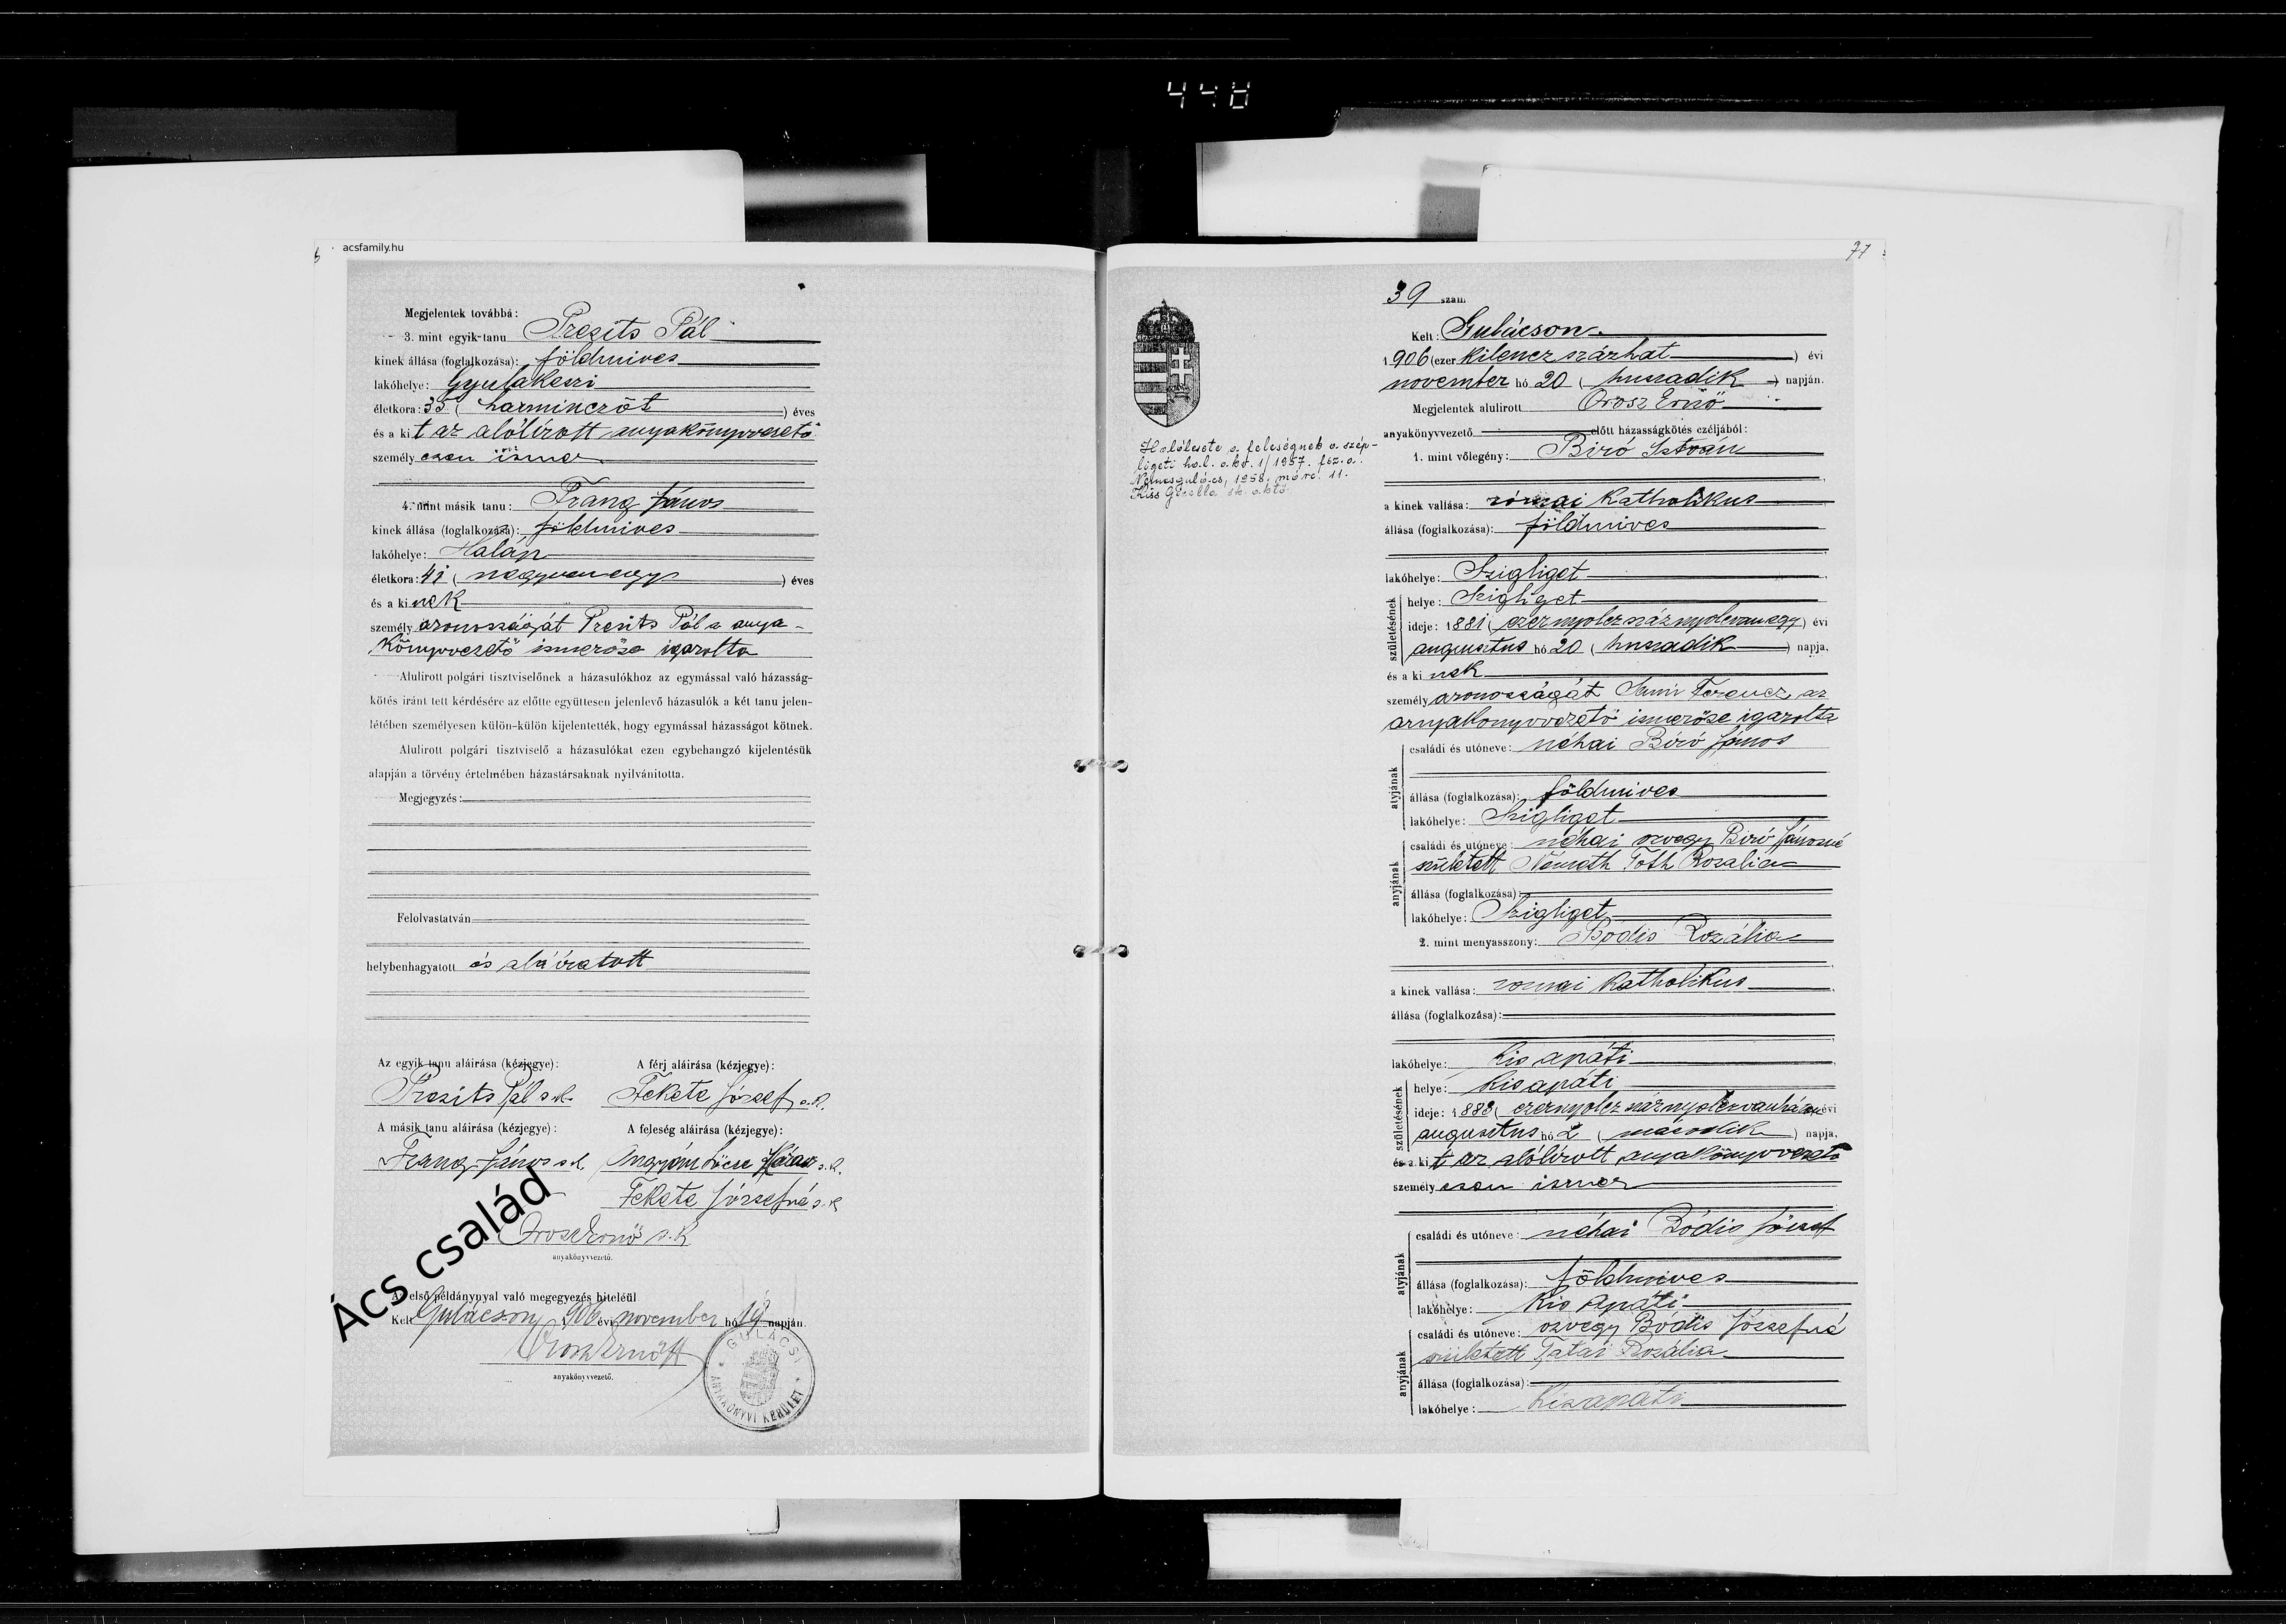 448
acsfamily.hu
Megjelentek továbbá:
3. mint egyik tanu Prezsits Pál
kinek állása (foglalkozása): földmives
lakóhelye: Gyulakeszi
életkora: 35 (harminczöt) éves
és a kit az alólirott anyakönyvvezető
személyesen ismer
4. mint másik tanu: Frang János
kinek állása (foglalkozása): földmives
lakóhelye: Haláp
életkora: 41 (negyvenegy) éves
és a kinek
személyazonosságát Presits Pál a anya-
könyvvezető ismerőse igazolta
Alulirott polgári tisztviselőnek a házasulókhoz az egymással való házasság-
kötés iránt tett kérdésére az előtte együttesen jelenlevő házasulók a két tanu jelen-
létében személyesen külön-külön kijelentették, hogy egymással házasságot kötnek.
Alulirott polgári tisztviselő a házasulókat ezen egybehangzó kijelentésük
alapján a törvény értelmében házastársaknak nyilvánitotta.
Megjegyzés:
Felolvastatván
helybenhagyatott és aláiratott
Az egyik tanu aláirása (kézjegye): A férj aláirása (kézjegye):
Prezsits Pál s.k. Fekete József s.k.
A másik tanu aláirása (kézjegye): A feleség aláirása (kézjegye):
Frang János s.k. s.k.
Fekete Józsefné s.k
Orosz Ernő s.k
anyakönyvvezető.
Ács család
Az első példánynyal való megegyezés hiteléül
Kelt Gulácson, 906 évi november hó 19 napján.
Orosz Ernő
anyakönyvvezető.
GULÁCSI ANYAKÖNYVI KERÜLET
77
39 szám
Kelt: Gulácson.
1906 (ezer kilenczszázhat) évi
november hó 20 (huszadik) napján.
Megjelentek alulirott Orosz Ernő
anyakönyvvezető előtt házasságkötés czéljából:
Halálesete a feleségnek a szép-
ligeti hal. a.kv. 1/1957. f.sz. a.
Nemesgulács, 1958. márc. 11.
Kiss Gizella sk.
1. mint vőlegény: Biró István
a kinek vallása: római katholikus
állása (foglalkozása): földmives
lakóhelye: Szigliget
születésének
helye: Szigliget
ideje: 1881 (ezernyolczszáznyolczvanegy) évi
augusztus hó 20 (huszadik) napja,
és a kinek
személyazonosságát Ferencz az
anyakönyvvezető ismerőse igazolta
atyjának
családi és utóneve: néhai Biró János
állása (foglalkozása): földmives
lakóhelye: Szigliget
anyjának
családi és utóneve: néhai özvegy Biró Jánosné
született Németh Tóth Rozalia
állása (foglalkozása):
lakóhelye: Szigliget
2. mint menyasszony: Bódis Rozália
a kinek vallása: római katholikus
állása (foglalkozása):
lakóhelye: Kis apáti
születésének
helye: Kis apáti
ideje: 1883 (ezernyolczszáznyolczvanhárom) évi
augusztus hó 2 (második) napja,
és a kit az alólirott anyakönyvvezető
személyesen ismer
atyjának
családi és utóneve: néhai Bódis József
állása (foglalkozása): földmives
lakóhelye: Kis apáti
anyjának
családi és utóneve: özvegy Bódis Józsefné
született Tatai Rozália
állása (foglalkozása):
lakóhelye: Kisapáti